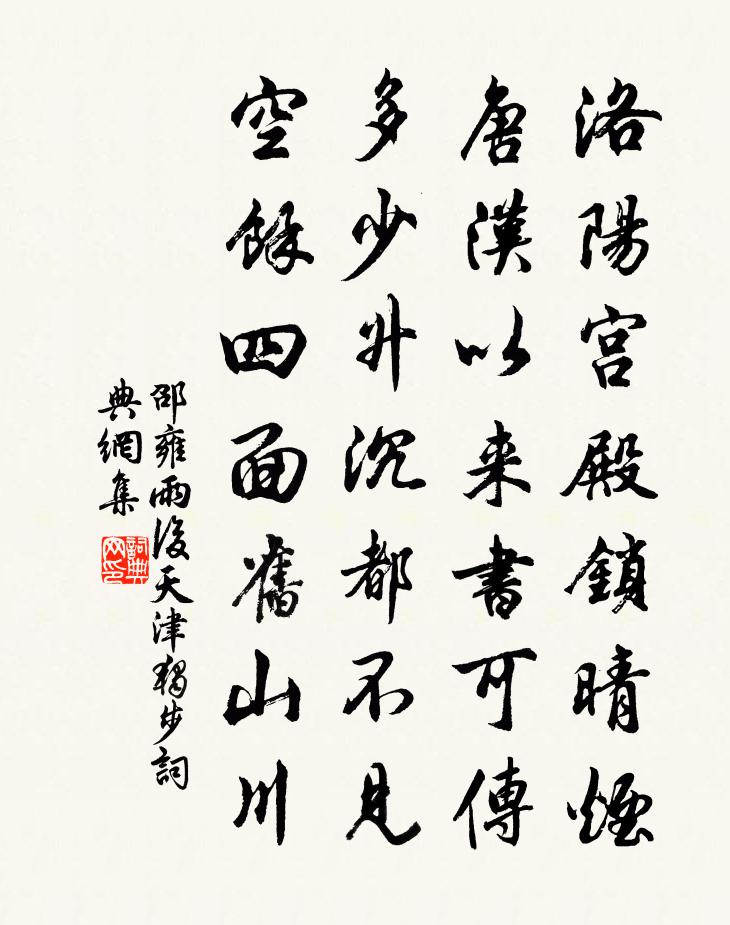 洛陽宮殿鎖晴煙
唐漢以来書可傳
多少升沉都不見
空餘四面舊山川
邵雍雨後天津獨步詞
典網集
詞典
网印